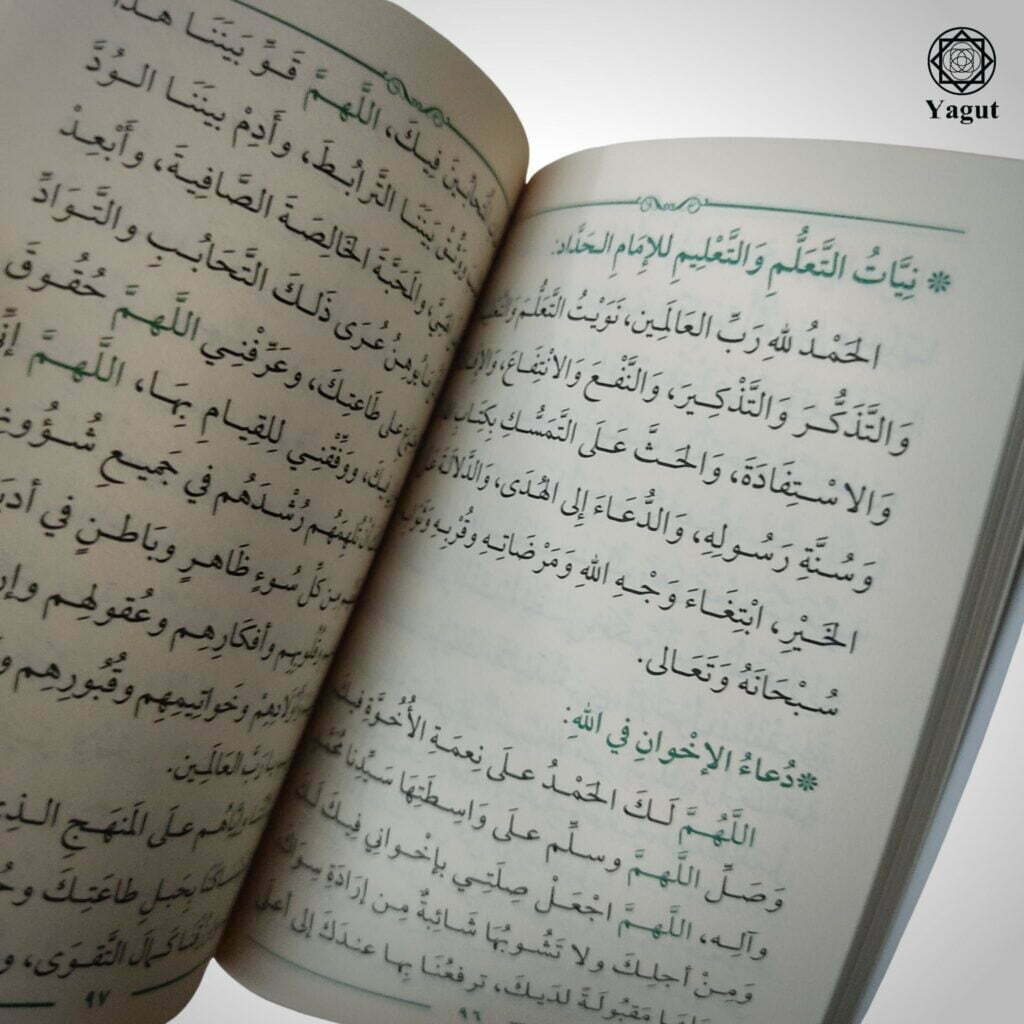 Yagut
* نِيَّاتُ التَّعَلُّمِ وَالتَّعْلِيمِ لِلإِمَامِ الحَدَّادِ:
الحَمْدُ للهِ رَبِّ العَالَمِين، نَوَيْتُ التَّعَلُّمَ
وَالتَّذَكُّرَ وَالتَّذْكِيرَ، وَالنَّفْعَ وَالانْتِفَاعَ،
وَالاسْتِفَادَةَ، وَالحَثَّ عَلَى التَّمَسُّكِ بِكِتَابِ
وَسُنَّةِ رَسُولِهِ، وَالدُّعَاءَ إِلَى الهُدَى، وَالدَّلَالَةَ
الخَيْرِ، ابْتِغَاءَ وَجْهِ اللهِ وَمَرْضَاتِهِ وَقُرْبِهِ
سُبْحَانَهُ وَتَعَالَى.
* دُعاءُ الإخْوانِ في اللهِ:
اللَّهُمَّ لَكَ الحَمْدُ علَى نِعمَةِ الأُخُوَّةِ فِيكَ
وَصَلِّ اللَّهمَّ وسلِّم علَى وَاسِطَتِهَا سَيِّدِنا
وآلِه، اللَّهمَّ اجْعَلْ صِلَتِي بإخْوانِي فِيكَ لَكَ
وَمِنْ أجلِكَ ولا تَشُوبُهَا شَائِبةٌ مِن إرَادَةِ
مَقبُولَةً لدَيكَ، ترفَعُنَا بِها عندَكَ إلى أعلَى
٩٦
فِيكَ، اللَّهمَّ قَوِّ بَينَنَا هذا
بَينَنَا التَّرابُطَ، وأَدِمْ بينَنَا الوُدَّ
والمَحَبَّةَ الخَالِصَةَ الصَّافِيةَ، وأَبعِدْ
عُرَى ذَلكَ التَّحَابُبِ والتَّوَادِّ
على طَاعتِكَ، وعَرِّفْنِي اللَّهمَّ حُقُوقَ
فِيكَ، ووَفِّقْنِي لِلقِيامِ بِهَا، اللَّهمَّ إنِّي
رُشْدَهُم في جَميعِ شُؤُونِهِم
مِن كُلِّ سُوءٍ ظَاهرٍ وبَاطنٍ في
وقُلُوبِهِم وأفكَارِهِم وعُقولِهِم
وخَواتِيمِهِم وقُبُورِهِم
يا رَبَّ العَالَمِين.
علَى المَنهَجِ الذِي
بِحَبلِ طاعَتِكَ
كمالَ التَّقوَى،
٩٧